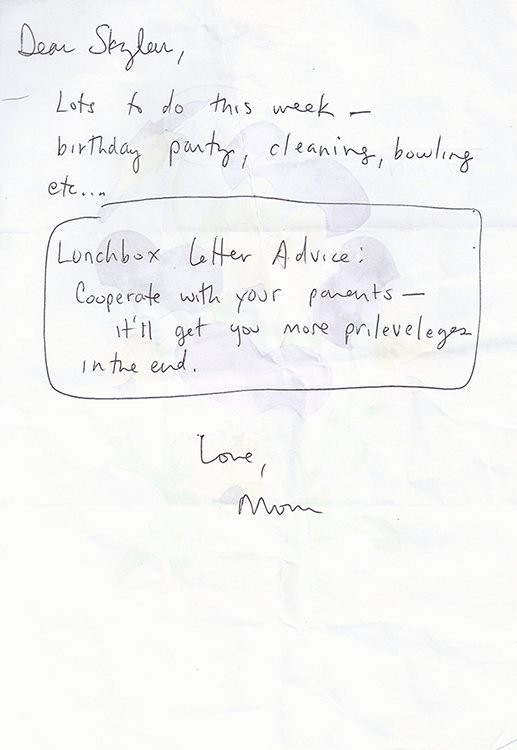 Dear Skyler,
Lots to do this week —
birthday party, cleaning, bowling
etc...
Lunchbox Letter Advice:
Cooperate with your parents —
it'll get you more prileveleges
in the end.
Love,
Mom